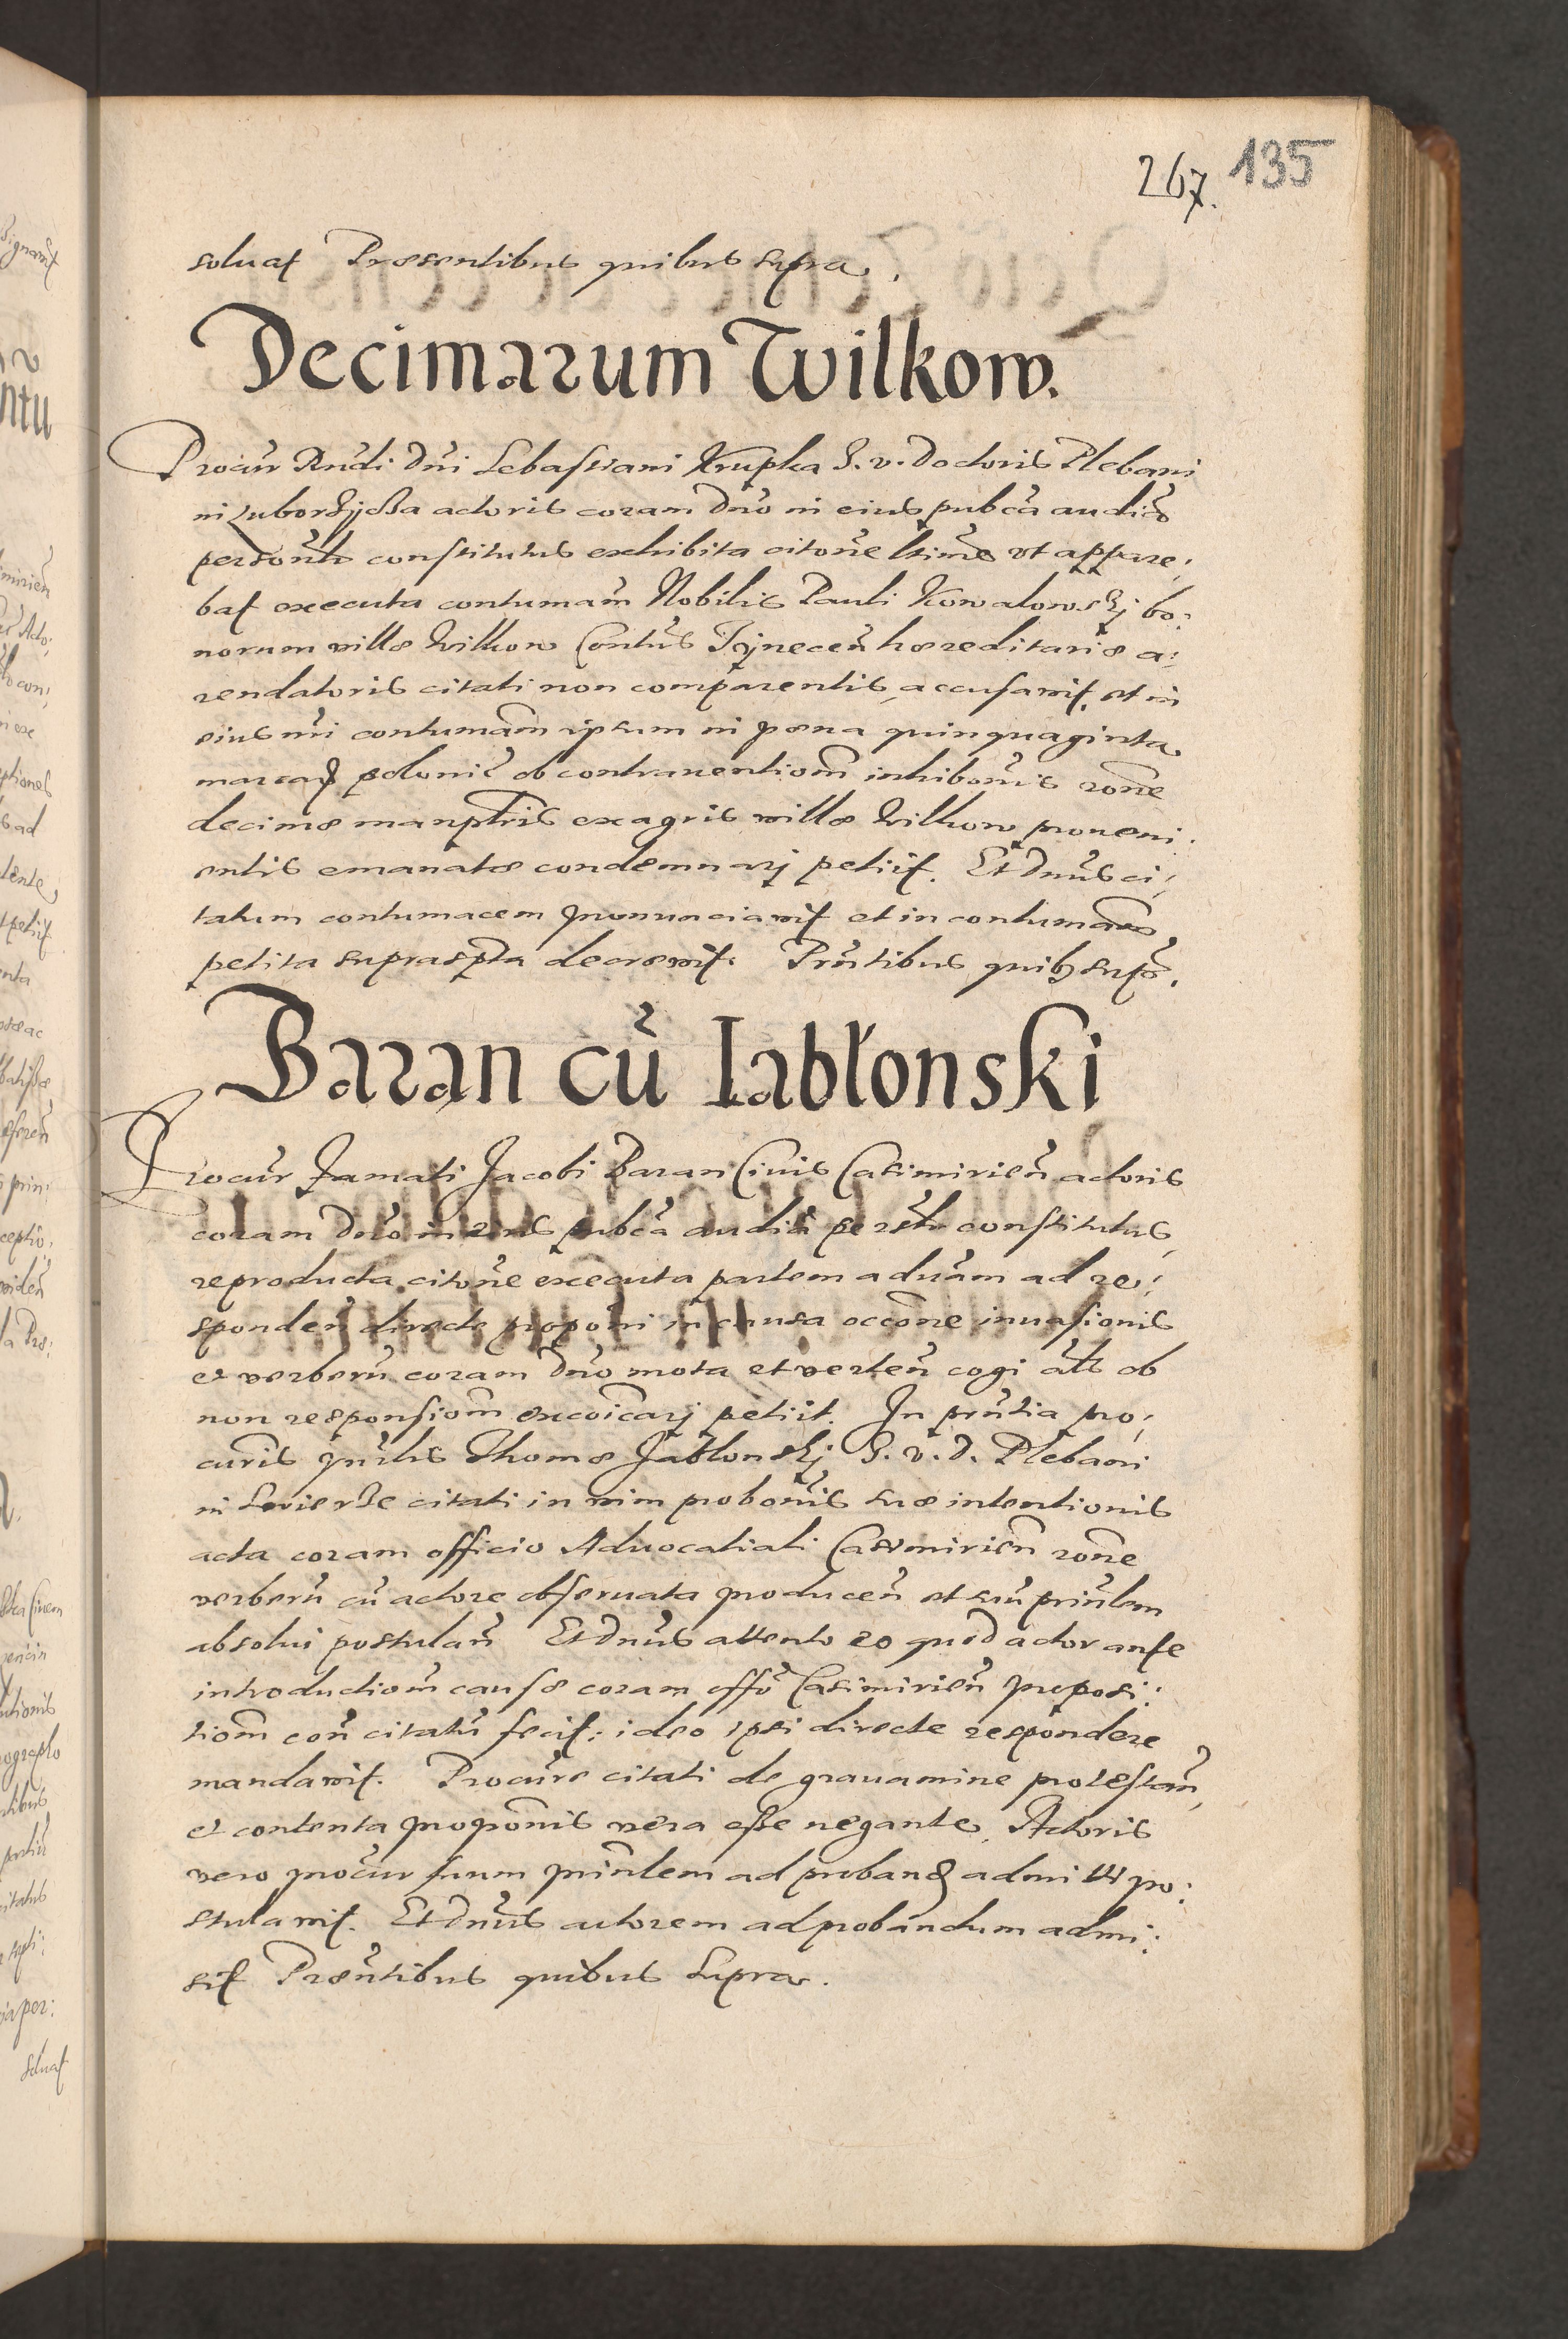 267. 135
soluat Præsentibus quibus supra.
Decimarum Wilkow.
Procur Rndi Dni Sebastiani Krupka J. v. Doctoris Plebani
in Luborzycza actoris coram Dno in eius pubca audia
personlr constitutus exhibita citone ltime vt appare:
bat executa contumam Nobilis Pauli Kowalowskj bo:
norum villæ Wilkow Contus Tynecen hæreditariæ a:
rendatoris citati non comparentis, accusauit, et in
eius mi contumam ipsum in pœna quinquaginta
marcar polonic ob contrauentiom inhibonis rone
decimæ manplris ex agris villæ Wilkow proueni:
entis emanatæ condemnarj petiit. Et Dnus ci:
tatum contumacem pronunciauit et in contumam
petita suprascpta decreuit. Prntibus quib supra.
Baran cu Iabłonski
Procur Famati Jacobi Baran Ciuis Casimirien actoris
coram Dno in eius pubca audia perslr constitutus
reproducta citone executa partem aduam ad re:
sponden directe proponi in causa occone inuasionis
et verberu coram Dno mota et verten cogi als ob
non responsiom excoicarj petiit. In prntia pro:
curis prnlis Thomæ Jabłonskj J. v. D. Plebani
in citati in vim probonis suæ intentionis
acta coram officio Aduocatiali Casimirien rone
verberu cu actore obseruata producen et suu prinlem
absolui postulan Et Dnus attento eo quod actor ante
introductiom causæ coram offo Casimirien proposi:
tiom con citatu fecit: ideo ipsi directe respondere
mandauit. Procure citati de grauamine protestan,
et contenta proponis vera esse negante, Actoris
vero procur suum prinlem ad proband admitti po:
stulauit. Et Dnus actorem ad probandum admi:
sit Præntibus quibus Supra.